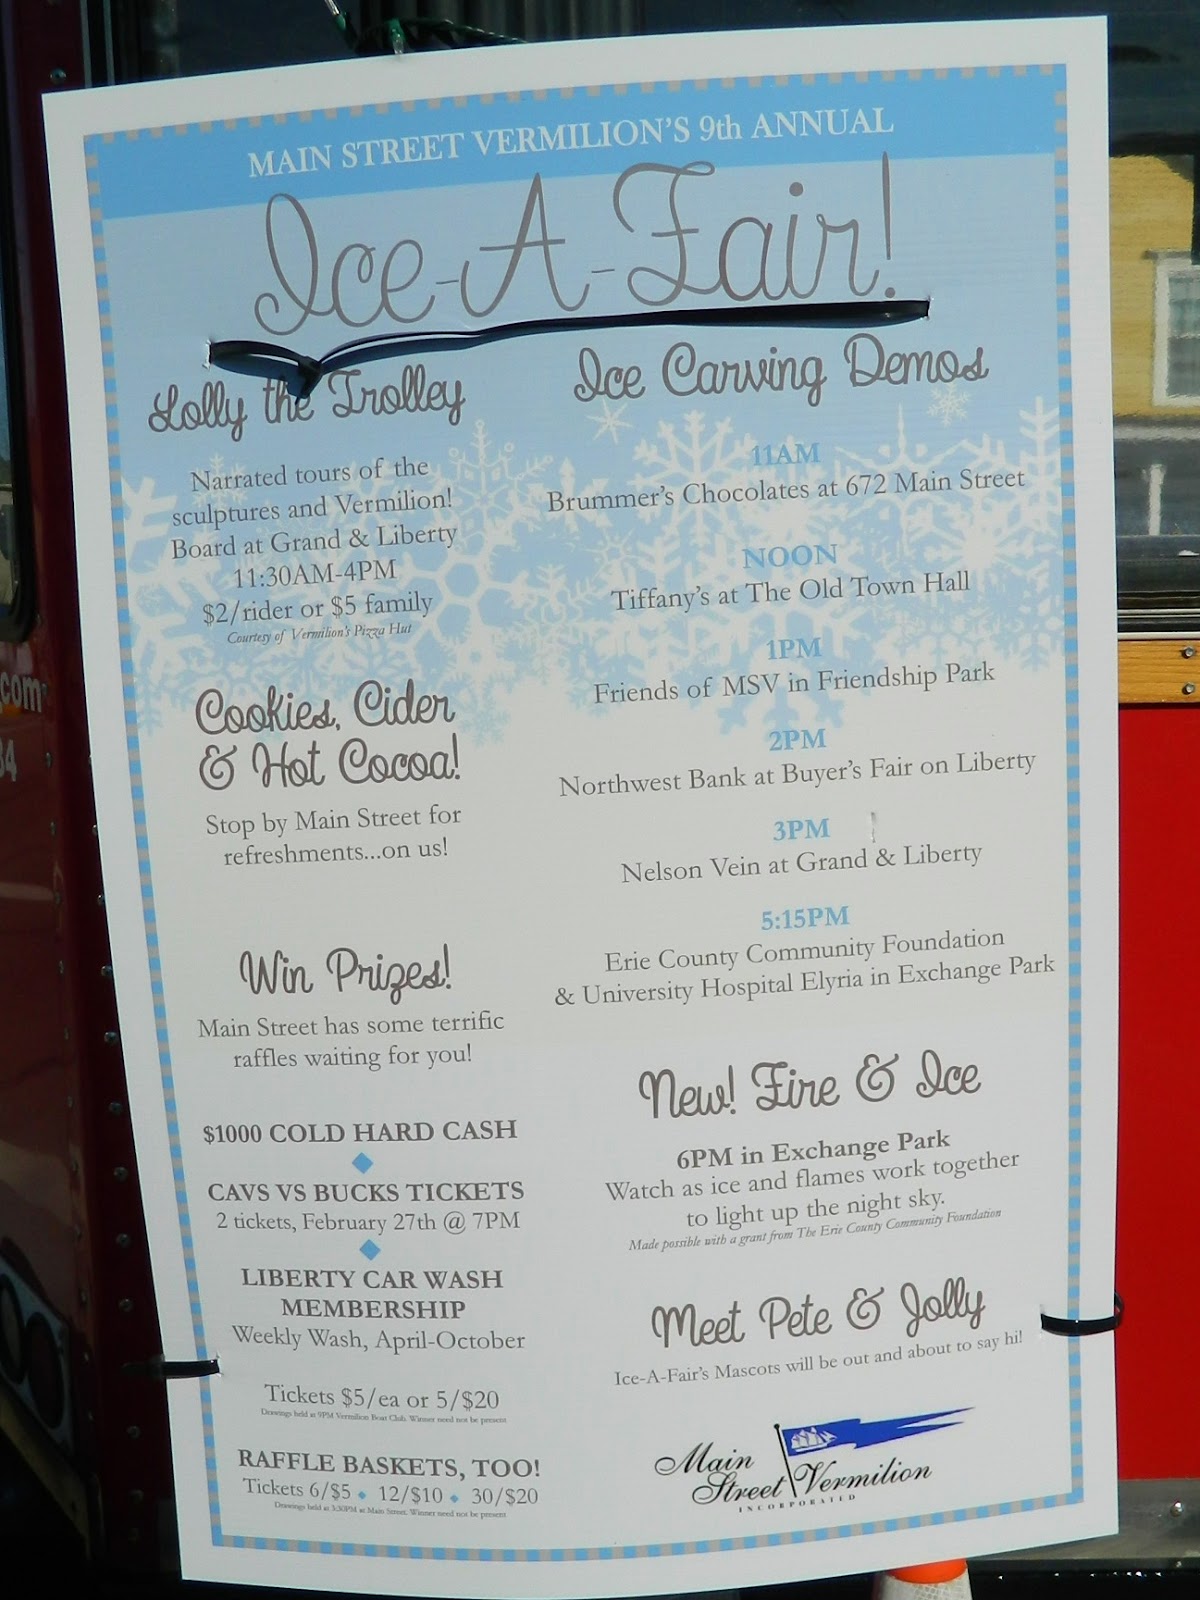 MAIN STREET VERMILION'S 9th ANNUAL
Ice-A-Fair!
Jolly the Trolley
Narrated tours of the
sculptures and Vermilion!
Board at Grand & Liberty
11:30AM-4PM
$2/rider or $5 family
Courtesy of Vermilion's Pizza Hut
Cookies, Cider
& Hot Cocoa!
Stop by Main Street for
refreshments...on us!
Win Prizes!
Main Street has some terrific
raffles waiting for you!
$1000 COLD HARD CASH
CAVS VS BUCKS TICKETS
2 tickets, February 27th @ 7PM
LIBERTY CAR WASH
MEMBERSHIP
Weekly Wash, April-October
Tickets $5/ea or 5/$20
Drawings held at 9PM Vermilion Boat Club. Winner need not be present
RAFFLE BASKETS, TOO!
Tickets 6/$5 ◆ 12/$10 ◆ 30/$20
Drawings held at 3:30PM at Main Street. Winner need not be present
Ice Carving Demos
11AM
Brummer's Chocolates at 672 Main Street
NOON
Tiffany's at The Old Town Hall
1PM
Friends of MSV in Friendship Park
2PM
Northwest Bank at Buyer's Fair on Liberty
3PM
Nelson Vein at Grand & Liberty
5:15PM
Erie County Community Foundation
& University Hospital Elyria in Exchange Park
New! Fire & Ice
6PM in Exchange Park
Watch as ice and flames work together
to light up the night sky.
Made possible with a grant from The Erie County Community Foundation
Meet Pete & Jolly
Ice-A-Fair's Mascots will be out and about to say hi!
Main
Street Vermilion
INCORPORATED
.com
34